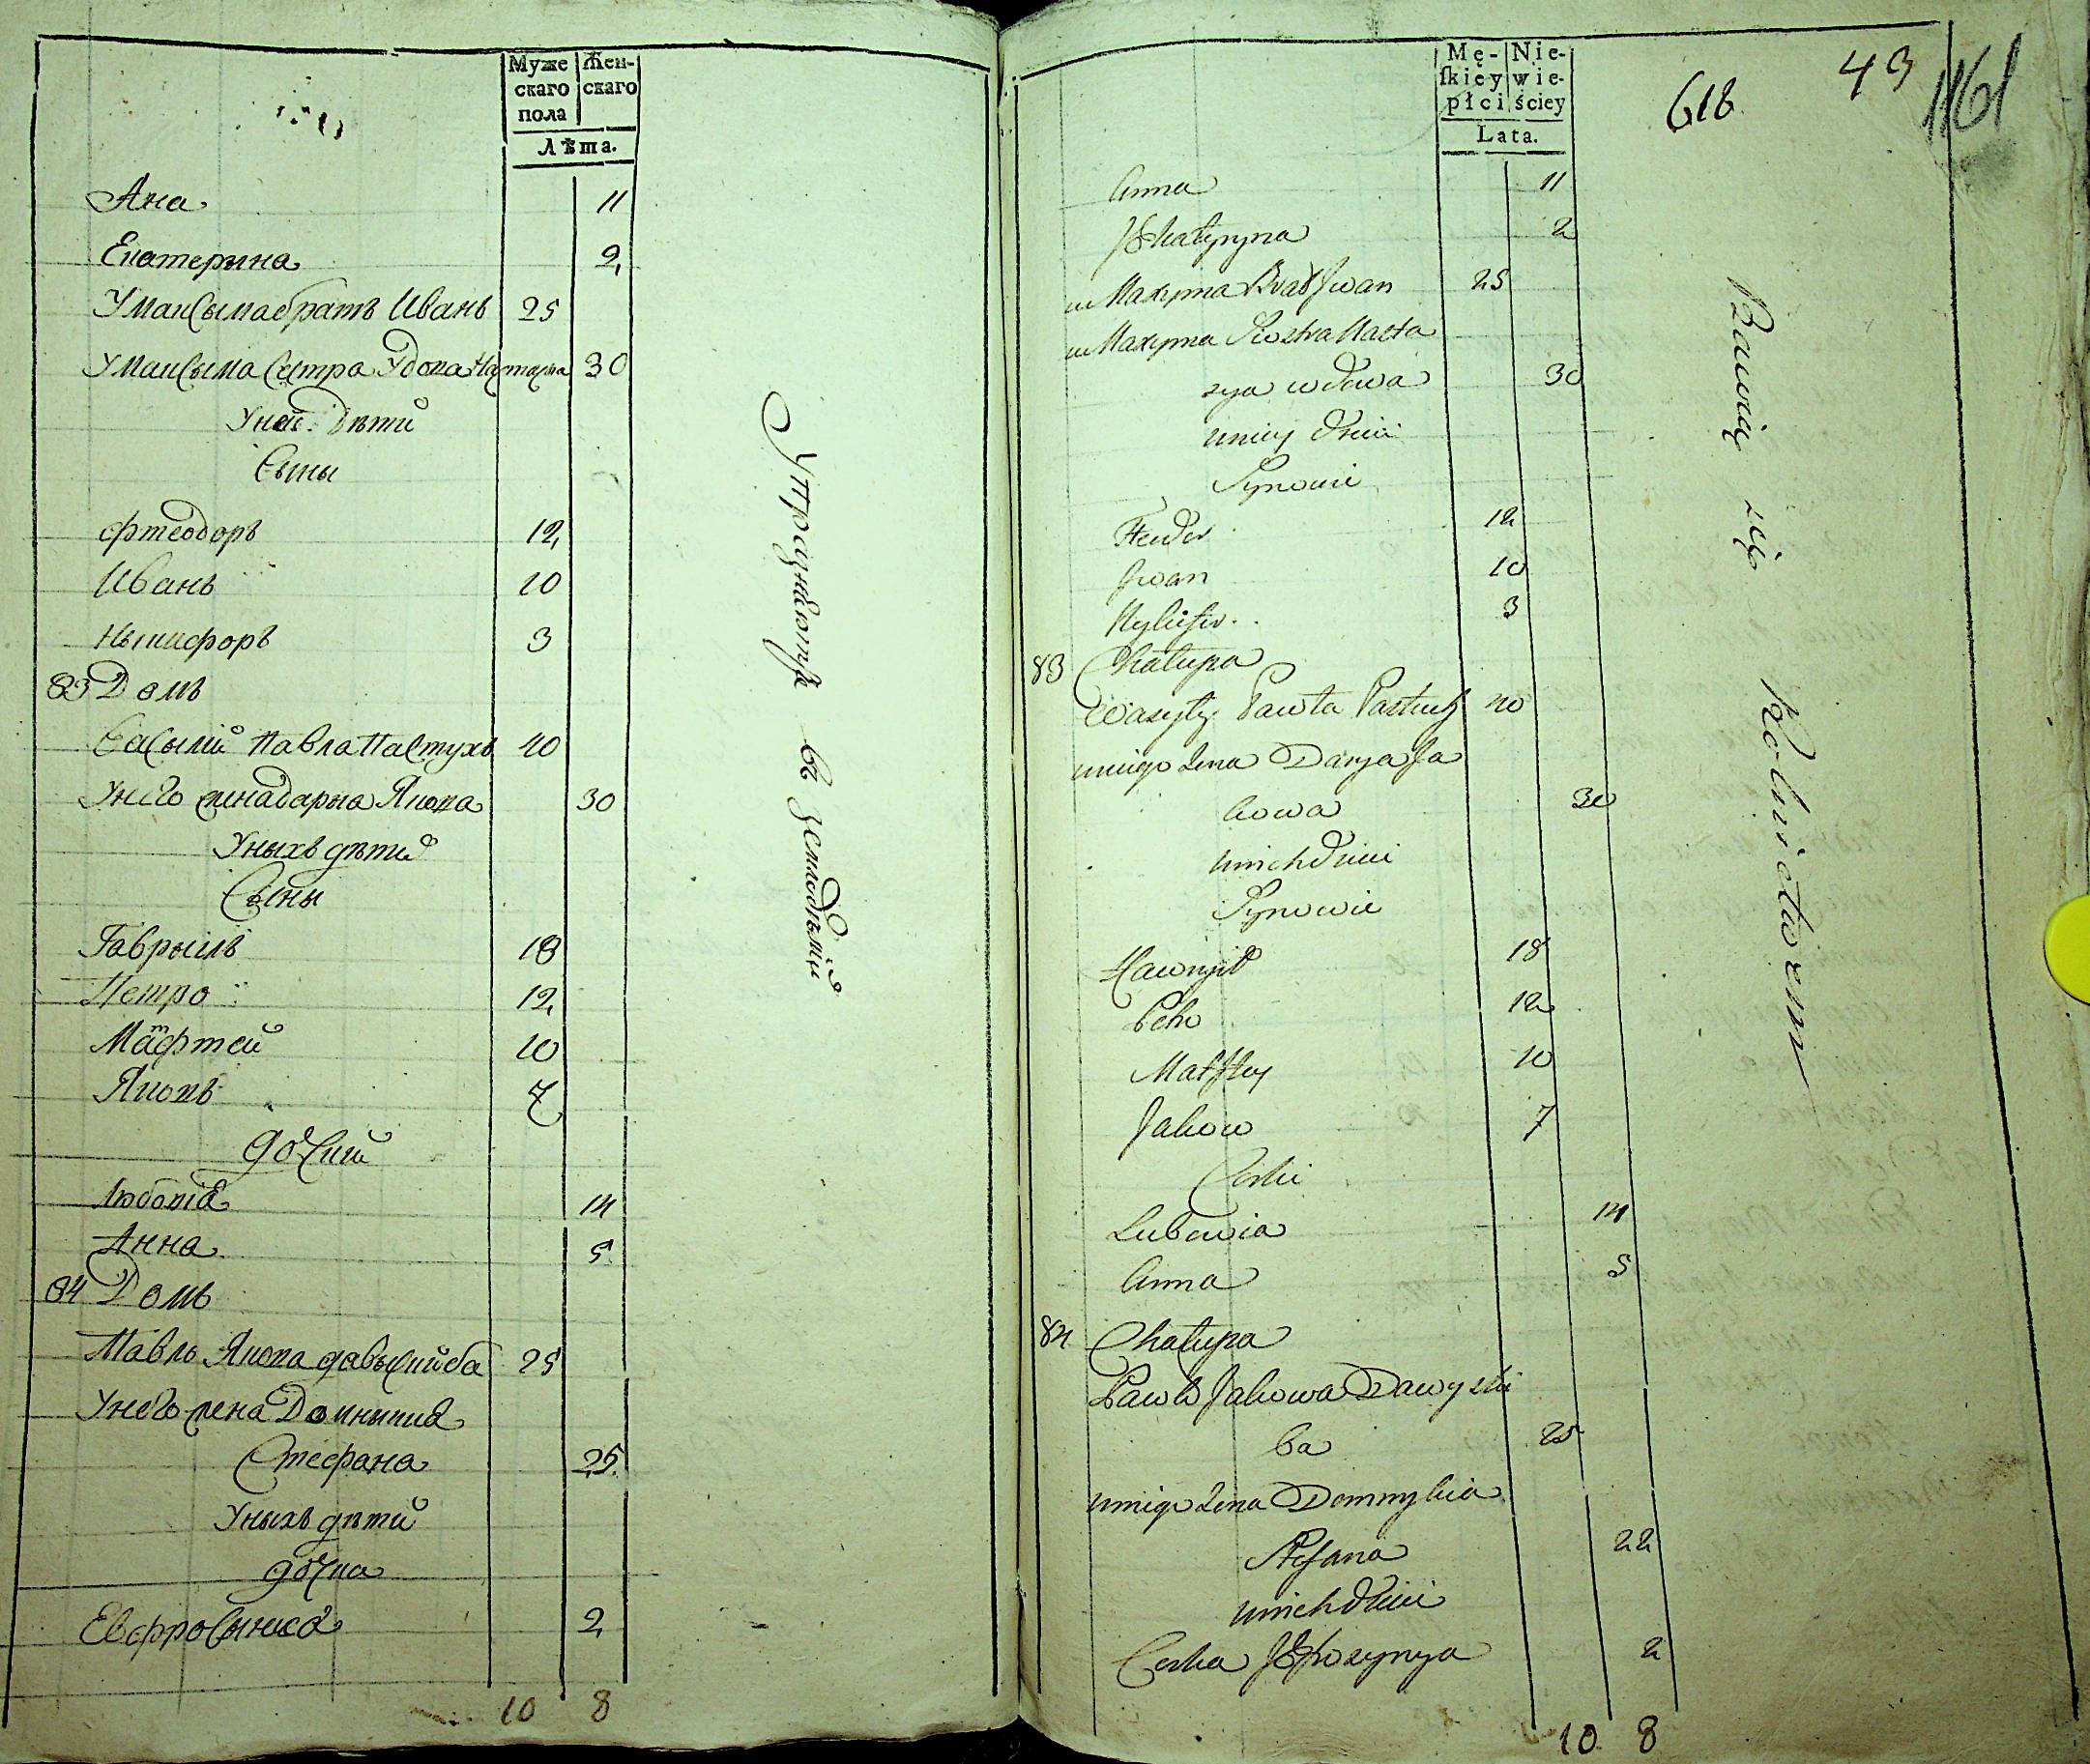 Муже
скаго
пола
Жен-
скаго
Лѣта.
Ана 11
Екатерына 2
У Максыма братъ Иванъ 25
У Максыма сестра удова Настасыа 30
У ней дѣти
Сыны
Фтеодоръ 12
Иванъ 10
Ныкифоръ 3
83 Домъ
Васылий Павла Пастухъ 40
У него жена Дарыа Якова 30
У ныхъ дѣтий
Сыны
Гаврыилъ 18
Петро 12
Матфтей 10
Яковъ 7
дочкий
Любовия 14
Анна 5
84 Домъ
Павлъ Якова Давыскийба 25
У него жена Домныкиа
Стефана 25
У ныхъ дѣтий
дочка
Евфросыниа 2
10 8
Упражнаютца въ земледѣлий
Mę-
ſkiey
płci
Nie-
wie-
ściey
Lata.
618
43
1161
Anna 11
Jekatyryna 2
u Maxyma Brat Jwan 25
u Maxyma Siostra Nasta
zya wdowa 30
u niey dzieci
Synowie
Fteudor 12
Jwan 10
Nykifor 3
83 Chałupa
Wasyly Pawła Pastuch 40
u niego żena Darya Ja
kowa 30
u nich dzieci
Synowie
Hawryił 18
Petro 12
Matftey 10
Jakow 7
Corki
Lubowia 14
Anna 5
84 Chałupa
Paweł Jakowa Dawyski
ba 25
u niego żena Domnykia
Stefana 22
u nich dzieci
Corka Jefrozynya 2
10 8
Bawią się Rolnictwem